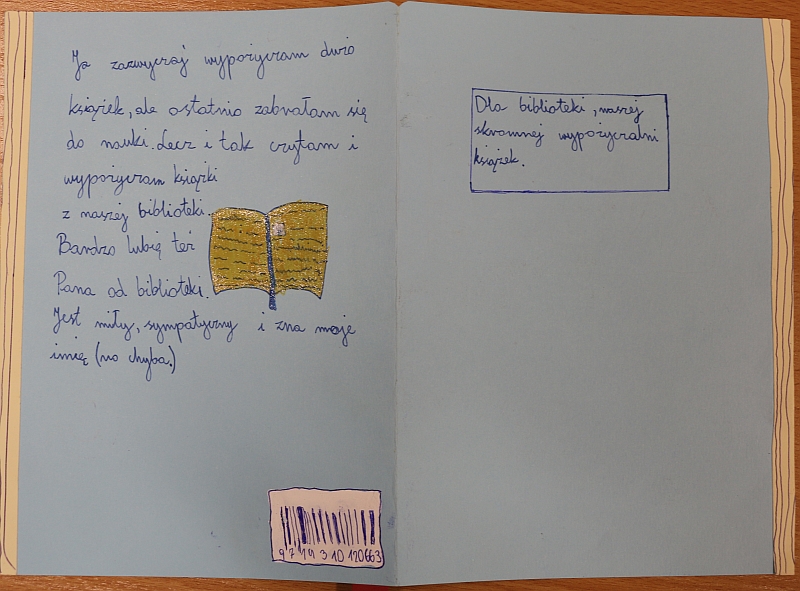 Ja zazwyczaj wypożyczam dużo
książek, ale ostatnio zabrałam się
do nauki. Lecz i tak czytam i
wypożyczam książki
z naszej biblioteki.
Bardzo lubię też
Pana od biblioteki.
Jest miły, sympatyczny i zna moje
imię (no chyba.)
9 7 14 3 10 120663
Dla biblioteki, naszej
skromnej wypożyczalni
książek.